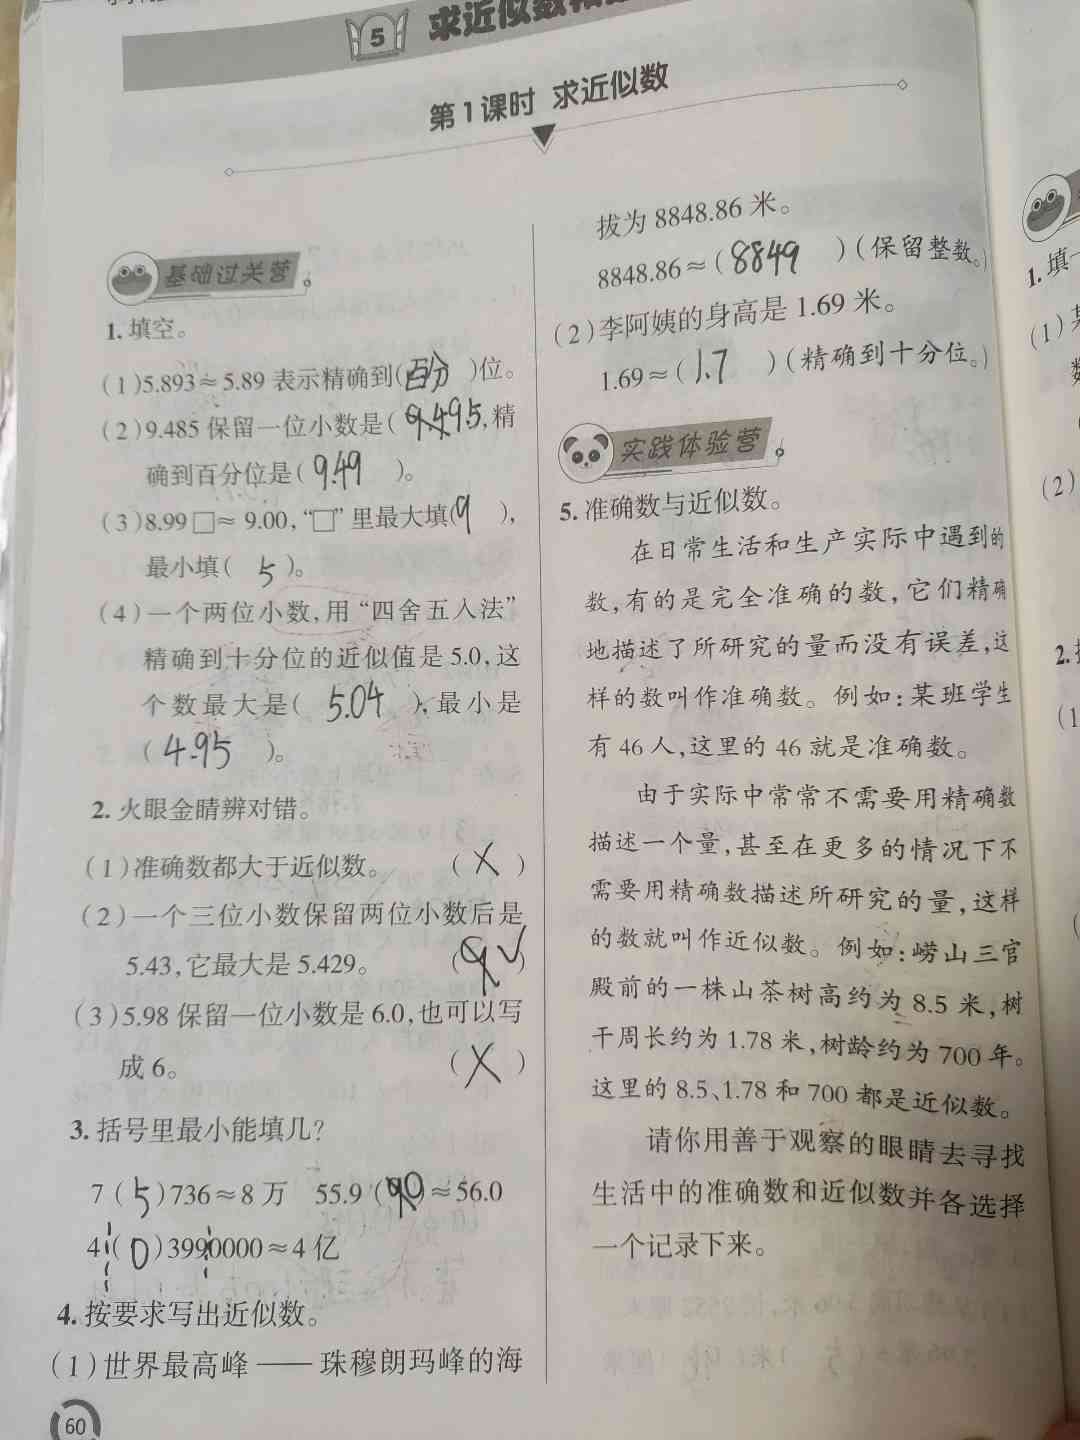 5 求近似数
第1课时 求近似数
基础过关营
1.填空。
(1)5.893≈5.89表示精确到(百分)位。
(2)9.485保留一位小数是(9.495,精
确到百分位是(9.49)。
(3)8.99□≈9.00,“□”里最大填(9),
最小填(5)。
(4)一个两位小数,用“四舍五入法”
精确到十分位的近似值是5.0,这
个数最大是(5.04),最小是
(4.95)。
2.火眼金睛辨对错。
(1)准确数都大于近似数。(×)
(2)一个三位小数保留两位小数后是
5.43,它最大是5.429。(√)
(3)5.98保留一位小数是6.0,也可以写
成6。(×)
3.括号里最小能填几?
7(5)736≈8万 55.9()≈56.0
4(0)3990000≈4亿
4.按要求写出近似数。
(1)世界最高峰——珠穆朗玛峰的海
60
拔为8848.86米。
8848.86≈(8849)(保留整数。)
(2)李阿姨的身高是1.69米。
1.69≈(1.7)(精确到十分位。)
实践体验营
5.准确数与近似数。
在日常生活和生产实际中遇到的
数,有的是完全准确的数,它们精确
地描述了所研究的量而没有误差,这
样的数叫作准确数。例如:某班学生
有46人,这里的46就是准确数。
由于实际中常常不需要用精确数
描述一个量,甚至在更多的情况下不
需要用精确数描述所研究的量,这样
的数就叫作近似数。例如:崂山三官
殿前的一株山茶树高约为8.5米,树
干周长约为1.78米,树龄约为700年。
这里的8.5、1.78和700都是近似数。
请你用善于观察的眼睛去寻找
生活中的准确数和近似数并各选择
一个记录下来。
1.填
(1)
(2)
2.
(1